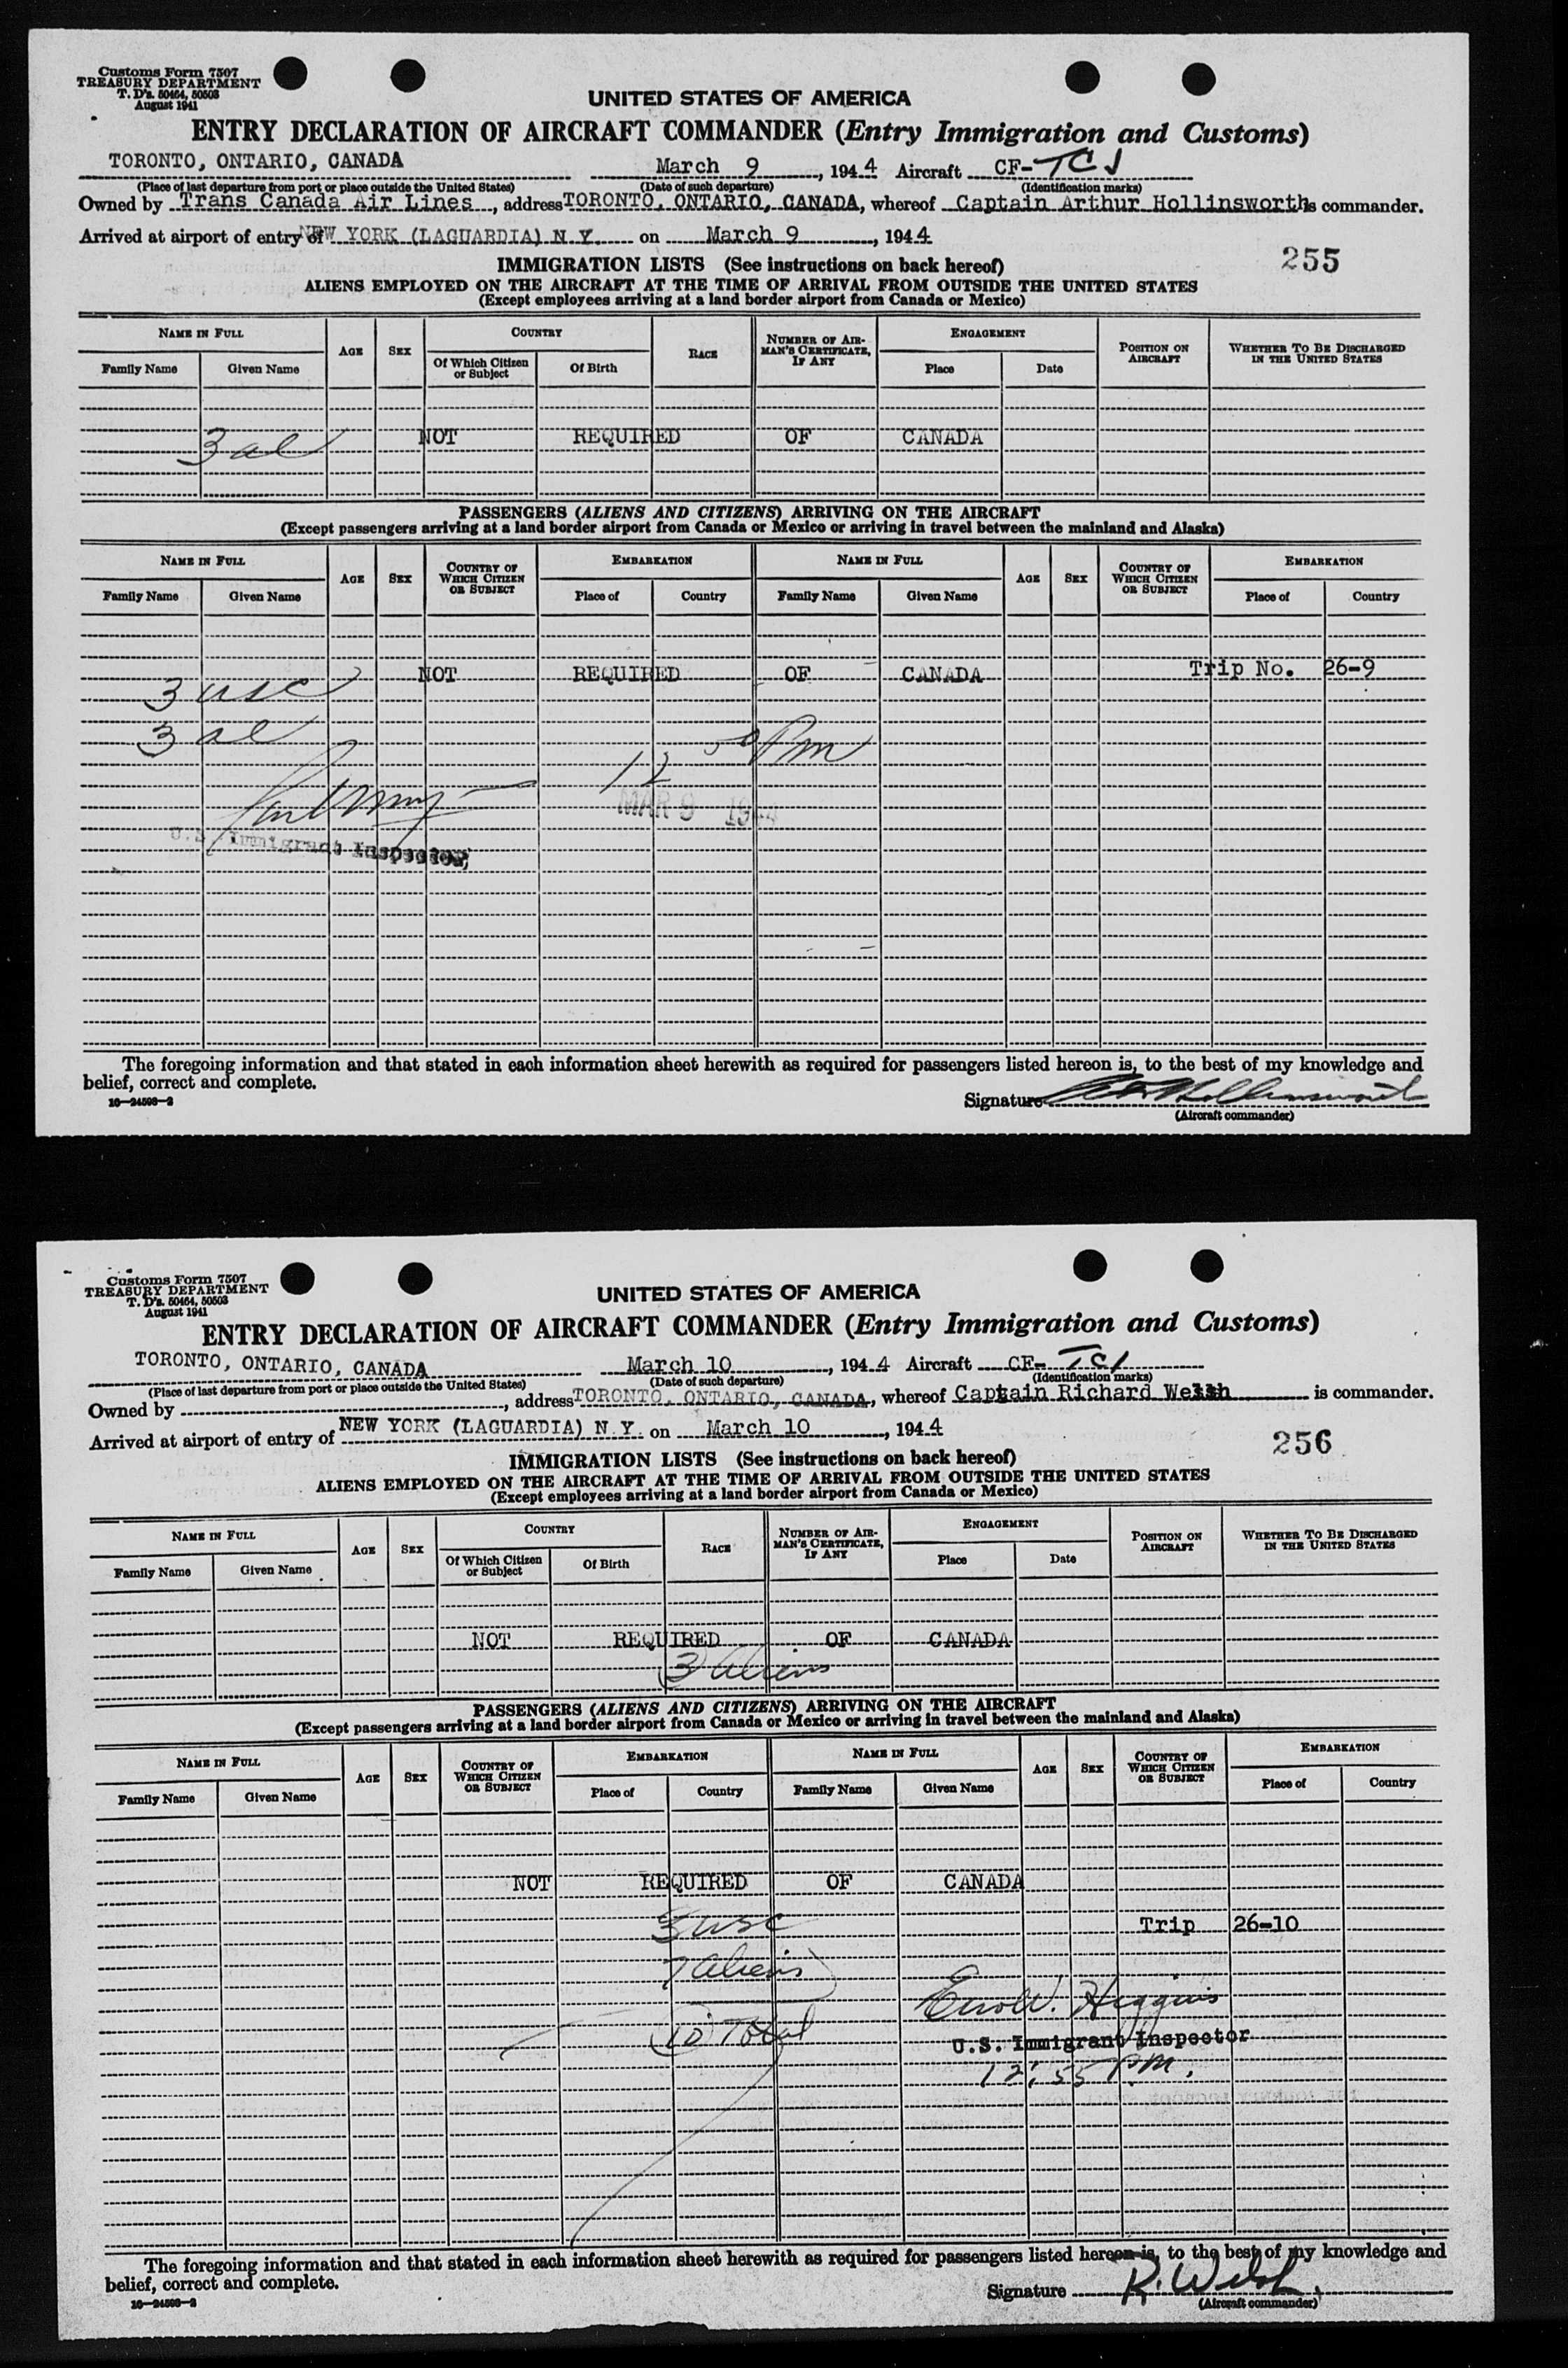 Customs Form 7507
TREASURY DEPARTMENT
T. D's. 50464, 50503
August 1941
UNITED STATES OF AMERICA
ENTRY DECLARATION OF AIRCRAFT COMMANDER (Entry Immigration and Customs)
TORONTO, ONTARIO, CANADA March 9, 1944 Aircraft CF-TCJ
(Place of last departure from port or place outside the United States) (Date of such departure) (Identification marks)
Owned by Trans Canada Air Lines, address TORONTO, ONTARIO, CANADA, whereof Captain Arthur Hollinsworth is commander.
Arrived at airport of entry of NEW YORK (LAGUARDIA) N.Y. on March 9, 1944
255
IMMIGRATION LISTS (See instructions on back hereof)
ALIENS EMPLOYED ON THE AIRCRAFT AT THE TIME OF ARRIVAL FROM OUTSIDE THE UNITED STATES
(Except employees arriving at a land border airport from Canada or Mexico)
NAME IN FULL AGE SEX COUNTRY RACE NUMBER OF AIRMAN'S CERTIFICATE, IF ANY ENGAGEMENT POSITION ON AIRCRAFT WHETHER TO BE DISCHARGED IN THE UNITED STATES
Family Name Given Name Of Which Citizen or Subject Of Birth Place Date
NOT REQUIRED OF CANADA
3 al
PASSENGERS (ALIENS AND CITIZENS) ARRIVING ON THE AIRCRAFT
(Except passengers arriving at a land border airport from Canada or Mexico or arriving in travel between the mainland and Alaska)
NAME IN FULL AGE SEX COUNTRY OF WHICH CITIZEN OR SUBJECT EMBARKATION NAME IN FULL AGE SEX COUNTRY OF WHICH CITIZEN OR SUBJECT EMBARKATION
Family Name Given Name Place of Country Family Name Given Name Place of Country
NOT REQUIRED OF CANADA Trip No. 26-9
3 usc
3 al
12 50 Pm
MAR 9 1944
U.S. Immigrant Inspector
The foregoing information and that stated in each information sheet herewith as required for passengers listed hereon is, to the best of my knowledge and
belief, correct and complete.
16—24598-2
Signature Hollinsworth
(Aircraft commander)
Customs Form 7507
TREASURY DEPARTMENT
T. D's. 50464, 50503
August 1941
UNITED STATES OF AMERICA
ENTRY DECLARATION OF AIRCRAFT COMMANDER (Entry Immigration and Customs)
TORONTO, ONTARIO, CANADA March 10, 1944 Aircraft CF-TCI
(Place of last departure from port or place outside the United States) (Date of such departure) (Identification marks)
Owned by , address TORONTO, ONTARIO, CANADA, whereof Captain Richard Welsh is commander.
Arrived at airport of entry of NEW YORK (LAGUARDIA) N.Y. on March 10, 1944
256
IMMIGRATION LISTS (See instructions on back hereof)
ALIENS EMPLOYED ON THE AIRCRAFT AT THE TIME OF ARRIVAL FROM OUTSIDE THE UNITED STATES
(Except employees arriving at a land border airport from Canada or Mexico)
NAME IN FULL AGE SEX COUNTRY RACE NUMBER OF AIRMAN'S CERTIFICATE, IF ANY ENGAGEMENT POSITION ON AIRCRAFT WHETHER TO BE DISCHARGED IN THE UNITED STATES
Family Name Given Name Of Which Citizen or Subject Of Birth Place Date
NOT REQUIRED OF CANADA
3 Aliens
PASSENGERS (ALIENS AND CITIZENS) ARRIVING ON THE AIRCRAFT
(Except passengers arriving at a land border airport from Canada or Mexico or arriving in travel between the mainland and Alaska)
NAME IN FULL AGE SEX COUNTRY OF WHICH CITIZEN OR SUBJECT EMBARKATION NAME IN FULL AGE SEX COUNTRY OF WHICH CITIZEN OR SUBJECT EMBARKATION
Family Name Given Name Place of Country Family Name Given Name Place of Country
NOT REQUIRED OF CANADA
3 usc Trip 26-10
7 Aliens
Errol W. Higgins
10 Total
U.S. Immigrant Inspector
12:55 P.M.
The foregoing information and that stated in each information sheet herewith as required for passengers listed hereon is, to the best of my knowledge and
belief, correct and complete.
16—24598-2
Signature R. Welsh
(Aircraft commander)